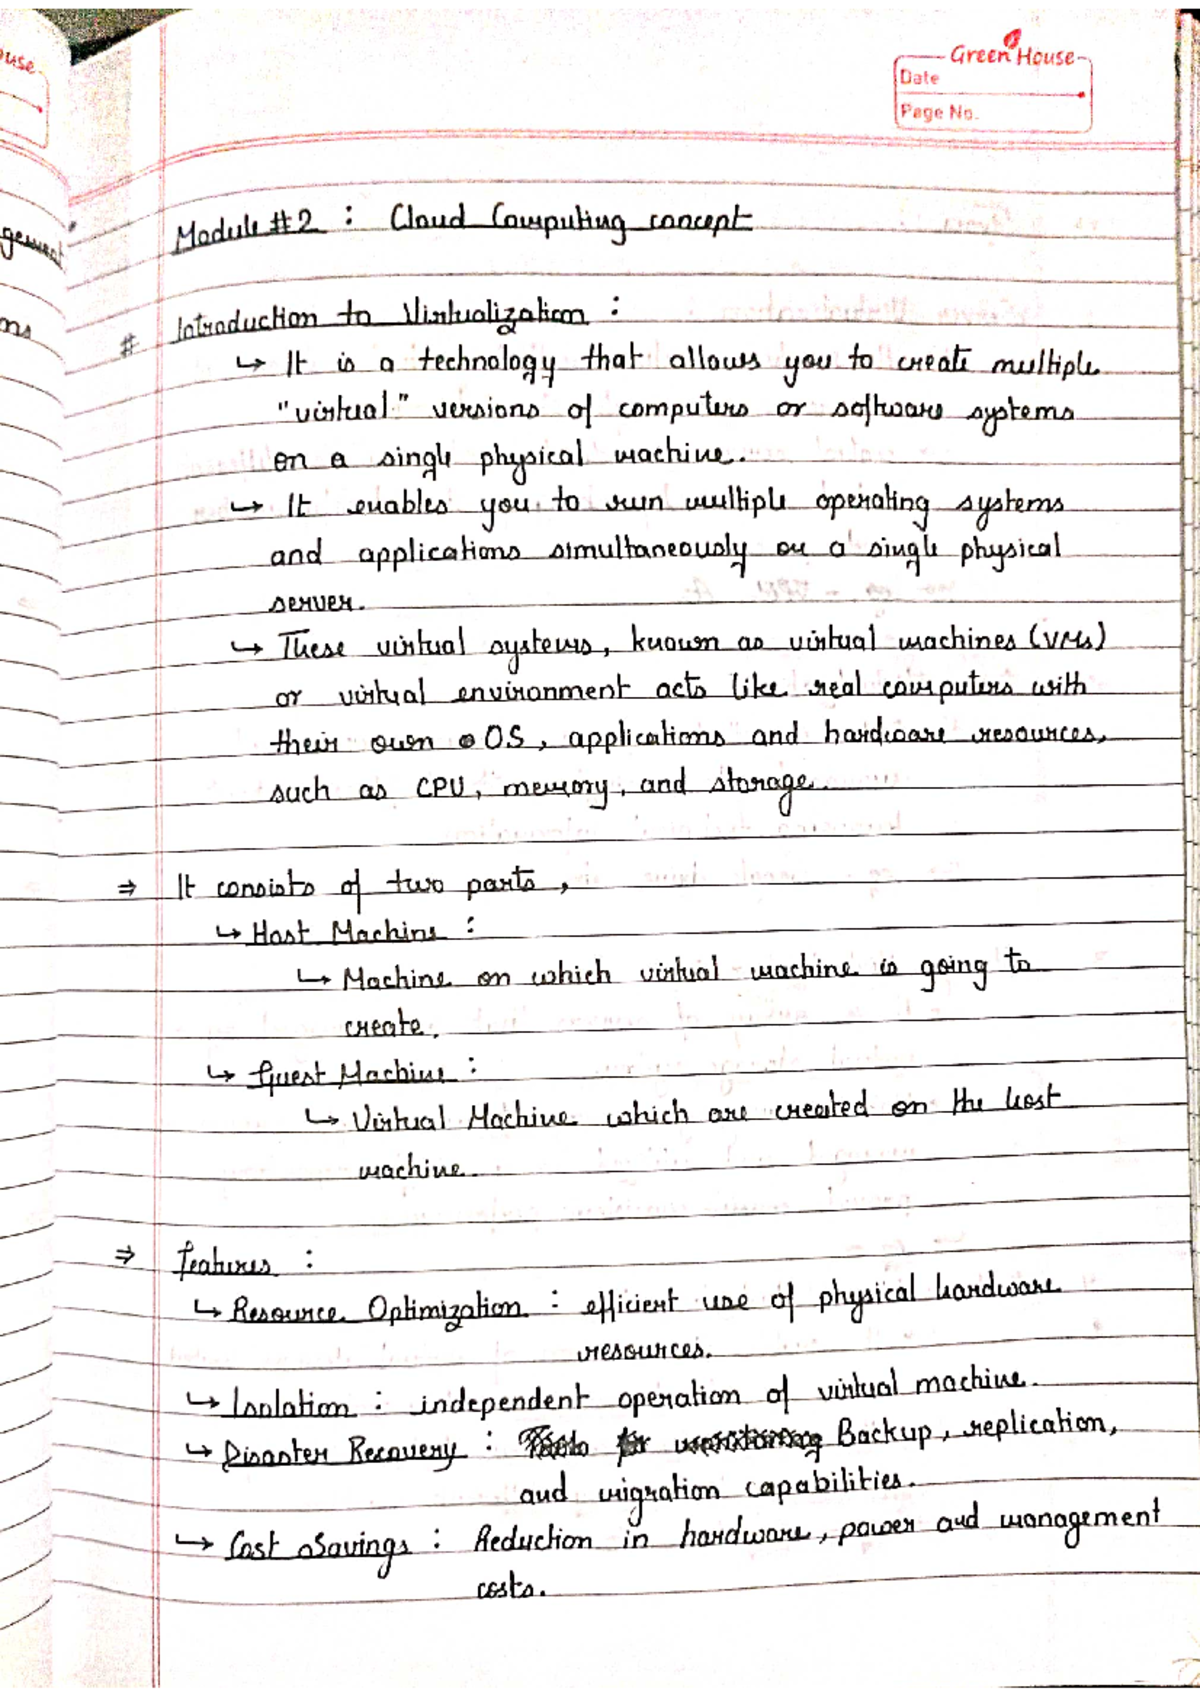 Green House
Date
Page No.
ouse
gement
ns
Module #2 : Cloud Computing concept
# Introduction to Virtualization :
↳ It is a technology that allows you to create multiple
"virtual" versions of computers or software systems
on a single physical machine.
↳ It enables you to run multiple operating systems
and applications simultaneously on a single physical
server.
↳ These virtual systems, known as virtual machines (VMs)
or virtual environment acts like real computers with
their own OS, applications and hardware resources,
such as CPU, memory, and storage.
⇒ It consists of two parts,
↳ Host Machine :
↳ Machine on which virtual machine is going to
create.
↳ Guest Machine :
↳ Virtual Machine which are created on the host
machine.
⇒ Features :
↳ Resource Optimization : efficient use of physical hardware
resources.
↳ Isolation : independent operation of virtual machine.
↳ Disaster Recovery : Backup, replication,
and migration capabilities.
↳ Cost Savings : Reduction in hardware, power and management
costs.